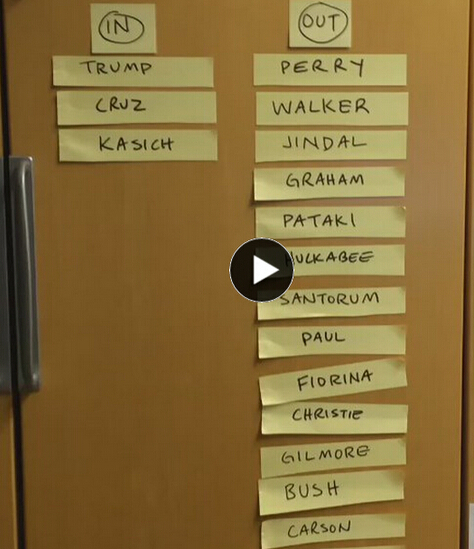 IN
TRUMP
CRUZ
KASICH
OUT
PERRY
WALKER
JINDAL
GRAHAM
PATAKI
HUCKABEE
SANTORUM
PAUL
FIORINA
CHRISTIE
GILMORE
BUSH
CARSON